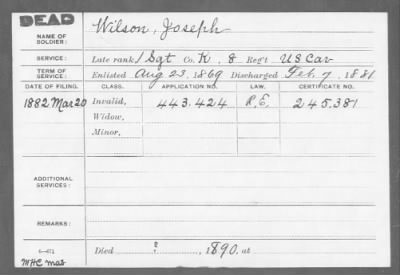 DEAD
NAME OF SOLDIER: Wilson, Joseph
SERVICE: Late rank 1 Sgt Co. K, 8 Reg't US Cav
TERM OF SERVICE: Enlisted Aug 23, 1869 Discharged Feb. 7, 1881
DATE OF FILING. CLASS. APPLICATION NO. LAW. CERTIFICATE NO.
1882 Mar 20 Invalid, 443.424 R.E. 245.381
Widow,
Minor,
ADDITIONAL SERVICES:
REMARKS:
Died ?, 1890. at
MHC mas